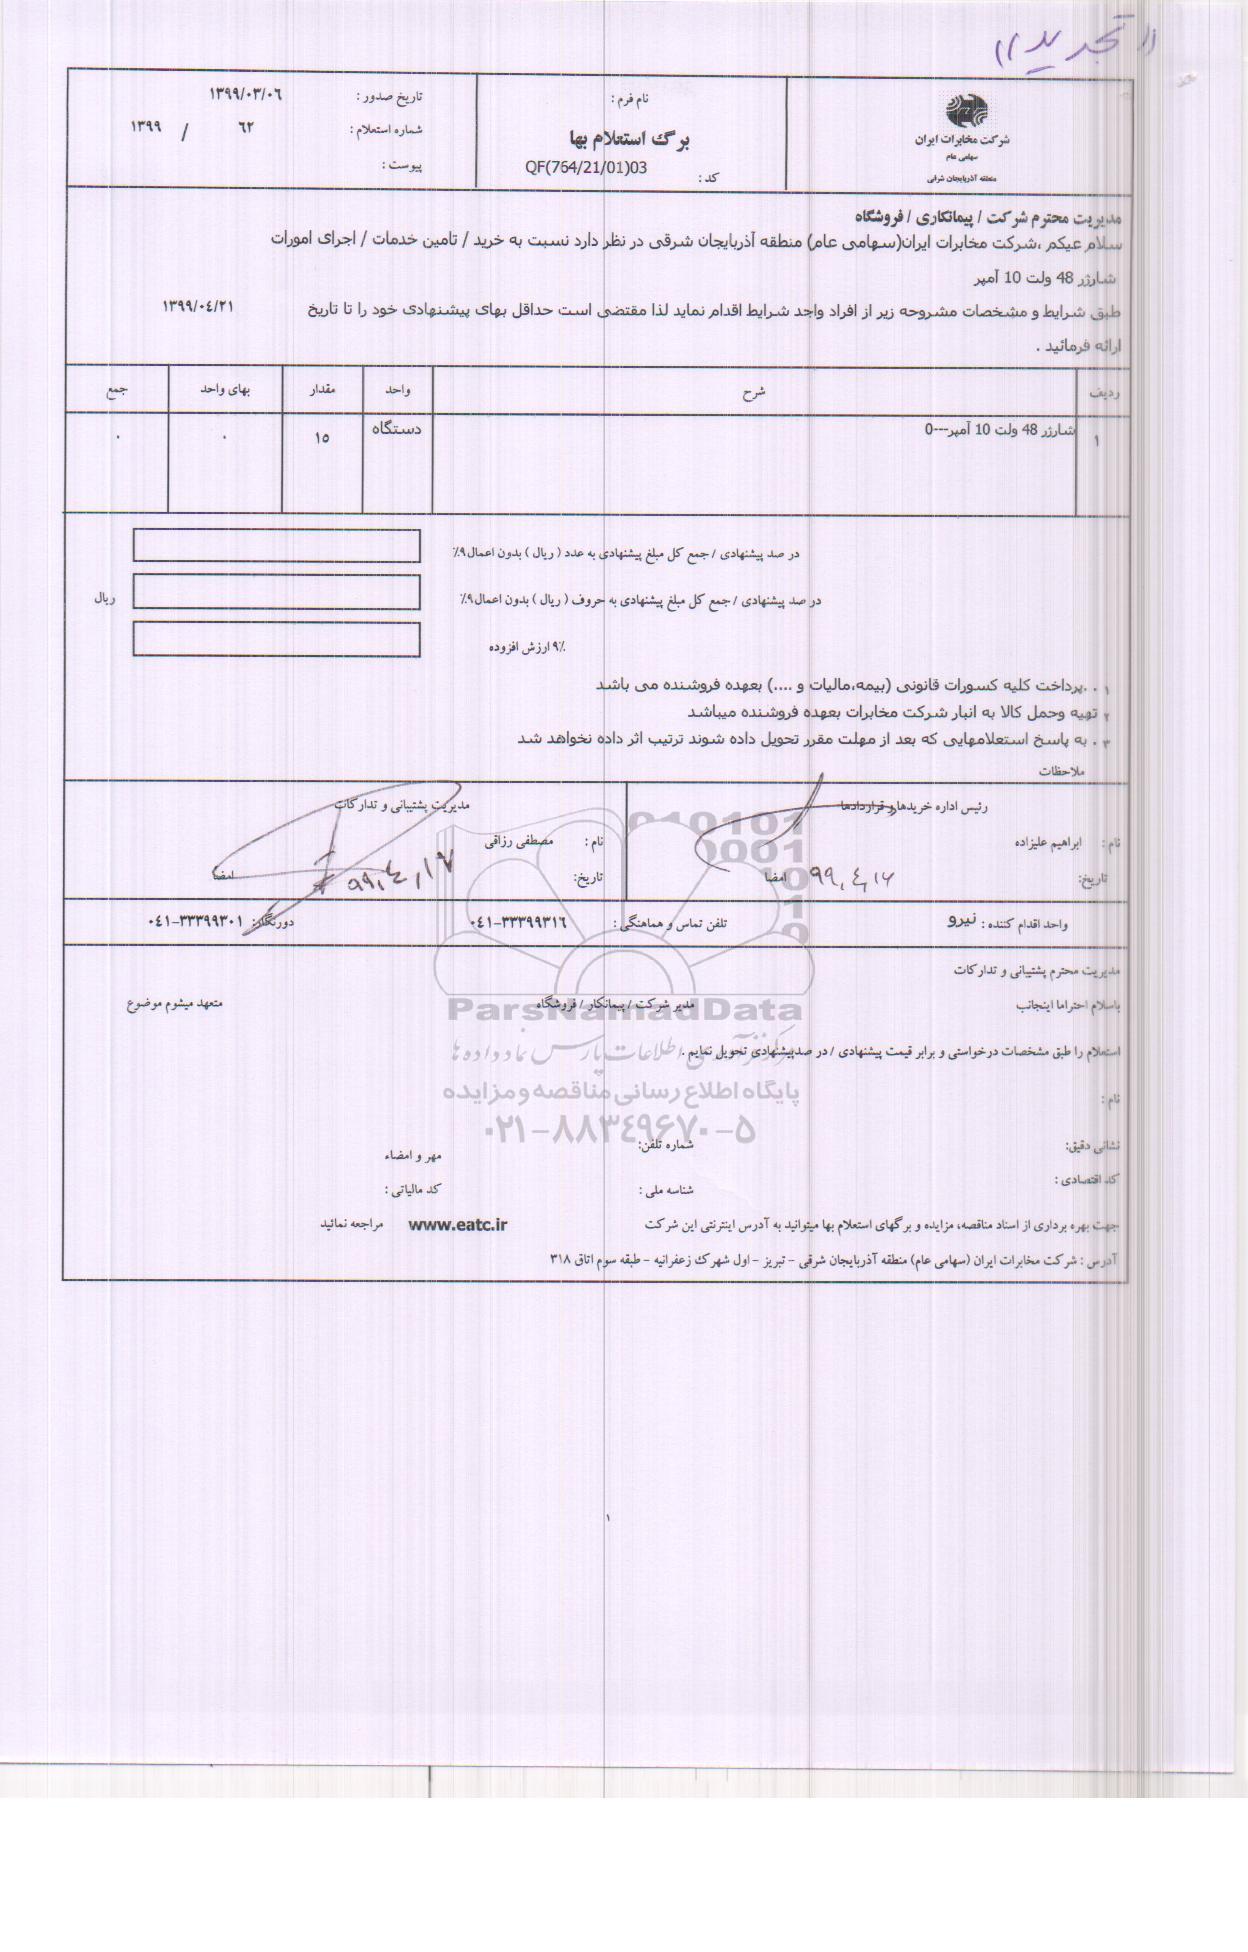 // تجدید //
شرکت مخابرات ایران
سهامی عام
منطقه آذربایجان شرقی
نام فرم :
برگ استعلام بها
کد : QF(764/21/01)03
تاریخ صدور : ۱۳۹۹/۰۳/۰۶
شماره استعلام : ۶۲ / ۱۳۹۹
پیوست :
مدیریت محترم شرکت / پیمانکاری / فروشگاه
سلام عیکم ،شرکت مخابرات ایران(سهامی عام) منطقه آذربایجان شرقی در نظر دارد نسبت به خرید / تامین خدمات / اجرای امورات
شارژر 48 ولت 10 آمپر
طبق شرایط و مشخصات مشروحه زیر از افراد واجد شرایط اقدام نماید لذا مقتضی است حداقل بهای پیشنهادی خود را تا تاریخ ۱۳۹۹/۰۴/۲۱
ارائه فرمائید .
ردیف شرح واحد مقدار بهای واحد جمع
۱ شارژر 48 ولت 10 آمپر---0 دستگاه ۱۵ ۰ ۰
در صد پیشنهادی / جمع کل مبلغ پیشنهادی به عدد ( ریال ) بدون اعمال ۹٪
در صد پیشنهادی / جمع کل مبلغ پیشنهادی به حروف ( ریال ) بدون اعمال ۹٪ ریال
۹٪ ارزش افزوده
۱ . .پرداخت کلیه کسورات قانونی (بیمه،مالیات و ....) بعهده فروشنده می باشد
۲ تهیه وحمل کالا به انبار شرکت مخابرات بعهده فروشنده میباشد
۳ . به پاسخ استعلامهایی که بعد از مهلت مقرر تحویل داده شوند ترتیب اثر داده نخواهد شد
ملاحظات
رئیس اداره خریدها و قراردادها
نام : ابراهیم علیزاده
تاریخ: ۹۹,۴,۱۶ امضا
مدیریت پشتیبانی و تدارکات
نام : مصطفی رزاقی
تاریخ: ۹۹,۴,۱۷ امضا
واحد اقدام کننده : نیرو تلفن تماس و هماهنگی : ۰۴۱-۳۳۳۹۹۳۱۶ دورنگار : ۰۴۱-۳۳۳۹۹۳۰۱
مدیریت محترم پشتیبانی و تدارکات
باسلام احتراما اینجانب مدیر شرکت / پیمانکار / فروشگاه متعهد میشوم موضوع
ParsNamadData
استعلام را طبق مشخصات درخواستی و برابر قیمت پیشنهادی / در صدپیشنهادی تحویل نمایم .
پایگاه اطلاع رسانی مناقصه و مزایده
نام :
۰۲۱-۸۸۳۴۹۶۷۰-۵
نشانی دقیق: شماره تلفن: مهر و امضاء
کد اقتصادی : شناسه ملی : کد مالیاتی :
جهت بهره برداری از اسناد مناقصه، مزایده و برگهای استعلام بها میتوانید به آدرس اینترنتی این شرکت www.eatc.ir مراجعه نمائید
آدرس : شرکت مخابرات ایران (سهامی عام) منطقه آذربایجان شرقی - تبریز - اول شهرک زعفرانیه - طبقه سوم اتاق ۳۱۸
۱